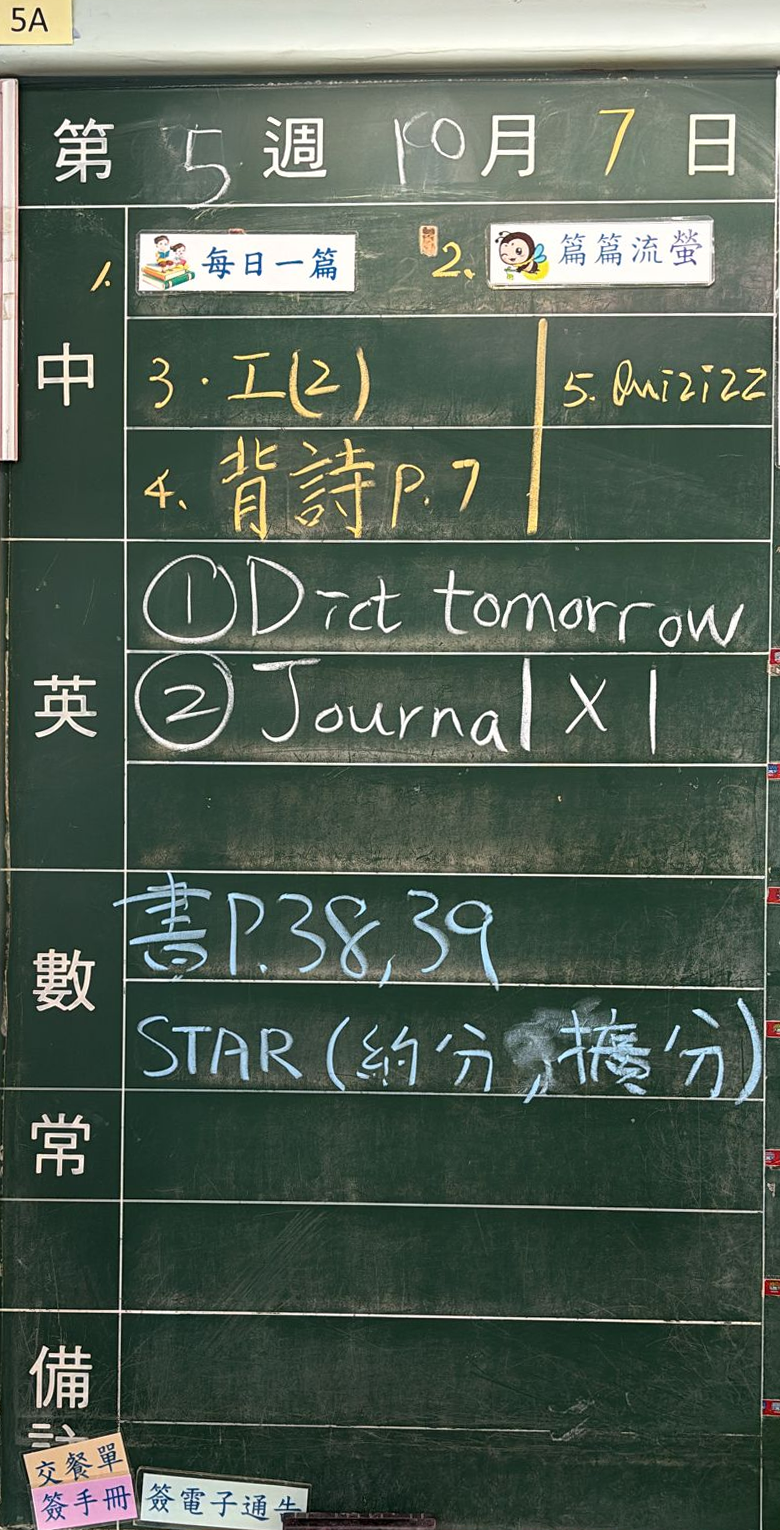 5A
第 5 週 10 月 7 日
中
1. 每日一篇 2. 篇篇流螢
3. 工(2) 5. Quizizz
4. 背詩 P.7
英
① Dict tomorrow
② Journal X 1
數
書 P.38, 39
STAR (約分, 擴分)
常
備
交餐單
簽手冊 簽電子通告